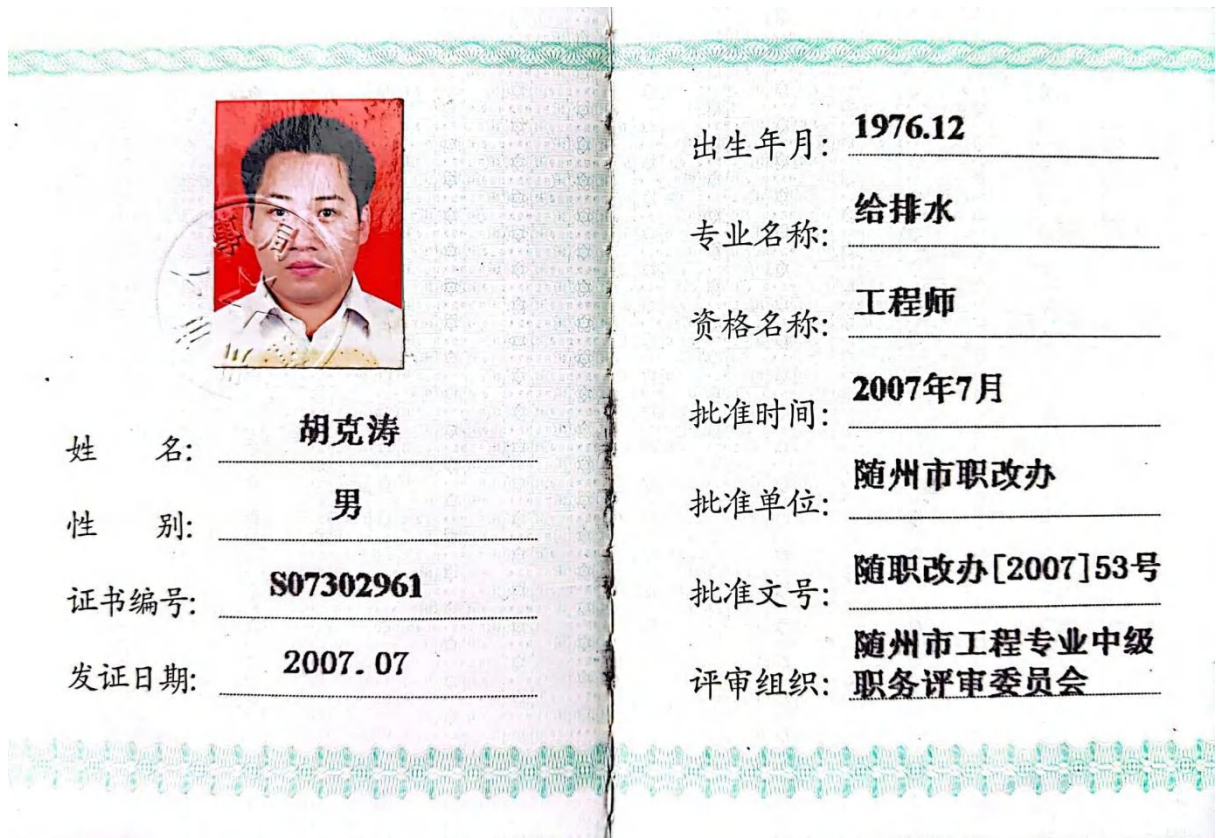 姓 名: 胡克涛
性 别: 男
证书编号: S07302961
发证日期: 2007.07
出生年月: 1976.12
专业名称: 给排水
资格名称: 工程师
批准时间: 2007年7月
批准单位: 随州市职改办
批准文号: 随职改办[2007]53号
随州市工程专业中级
评审组织: 职务评审委员会